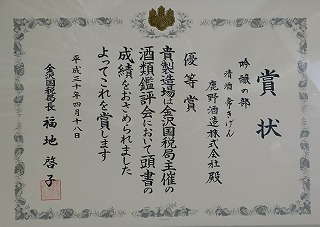 賞状
吟醸の部
清酒 常きげん
鹿野酒造株式会社 殿
優等賞
貴製造場は金沢国税局主催の
酒類鑑評会において頭書の
成績をおさめられました
よってこれを賞します
平成三十年四月十八日
金沢国税局長
福地啓子